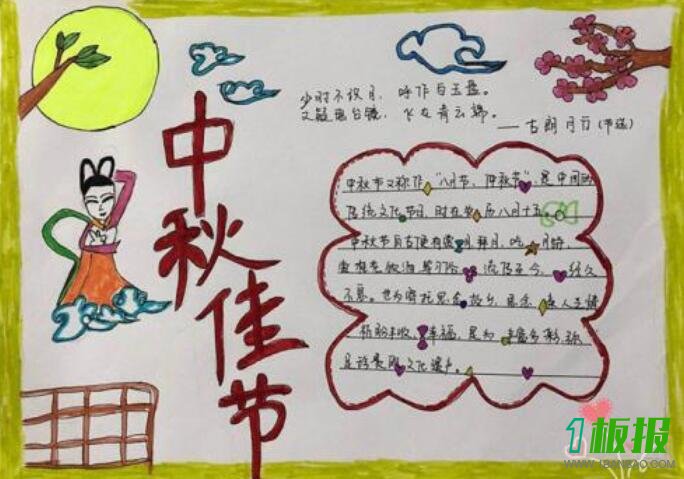 中秋佳节
少时不识月，呼作白玉盘。
又疑瑶台镜，飞在青云端。
——古朗月行(节选)
中秋节又称作“八月节、仲秋节”，是中国的
传统文化节日，时在农历八月十五。
中秋节自古便有祭月、拜月、吃月饼，
流传至今，经久
不息。也为寄托思念故乡，思念亲人之情
祈盼丰收、幸福，是为丰富多彩、弥
足珍贵的文化遗产。
1板报
WWW.1BANBAO.COM